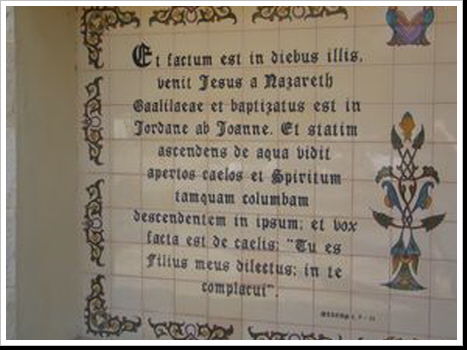 Et factum est in diebus illis,
venit Jesus a Nazareth
Gaalilaeae et baptizatus est in
Jordane ab Joanne. Et statim
ascendens de aqua vidit
apertos caelos et Spiritum
tamquam columbam
descendentem in ipsum; et vox
facta est de caelis: "Tu es
Filius meus dilectus; in te
complacui".